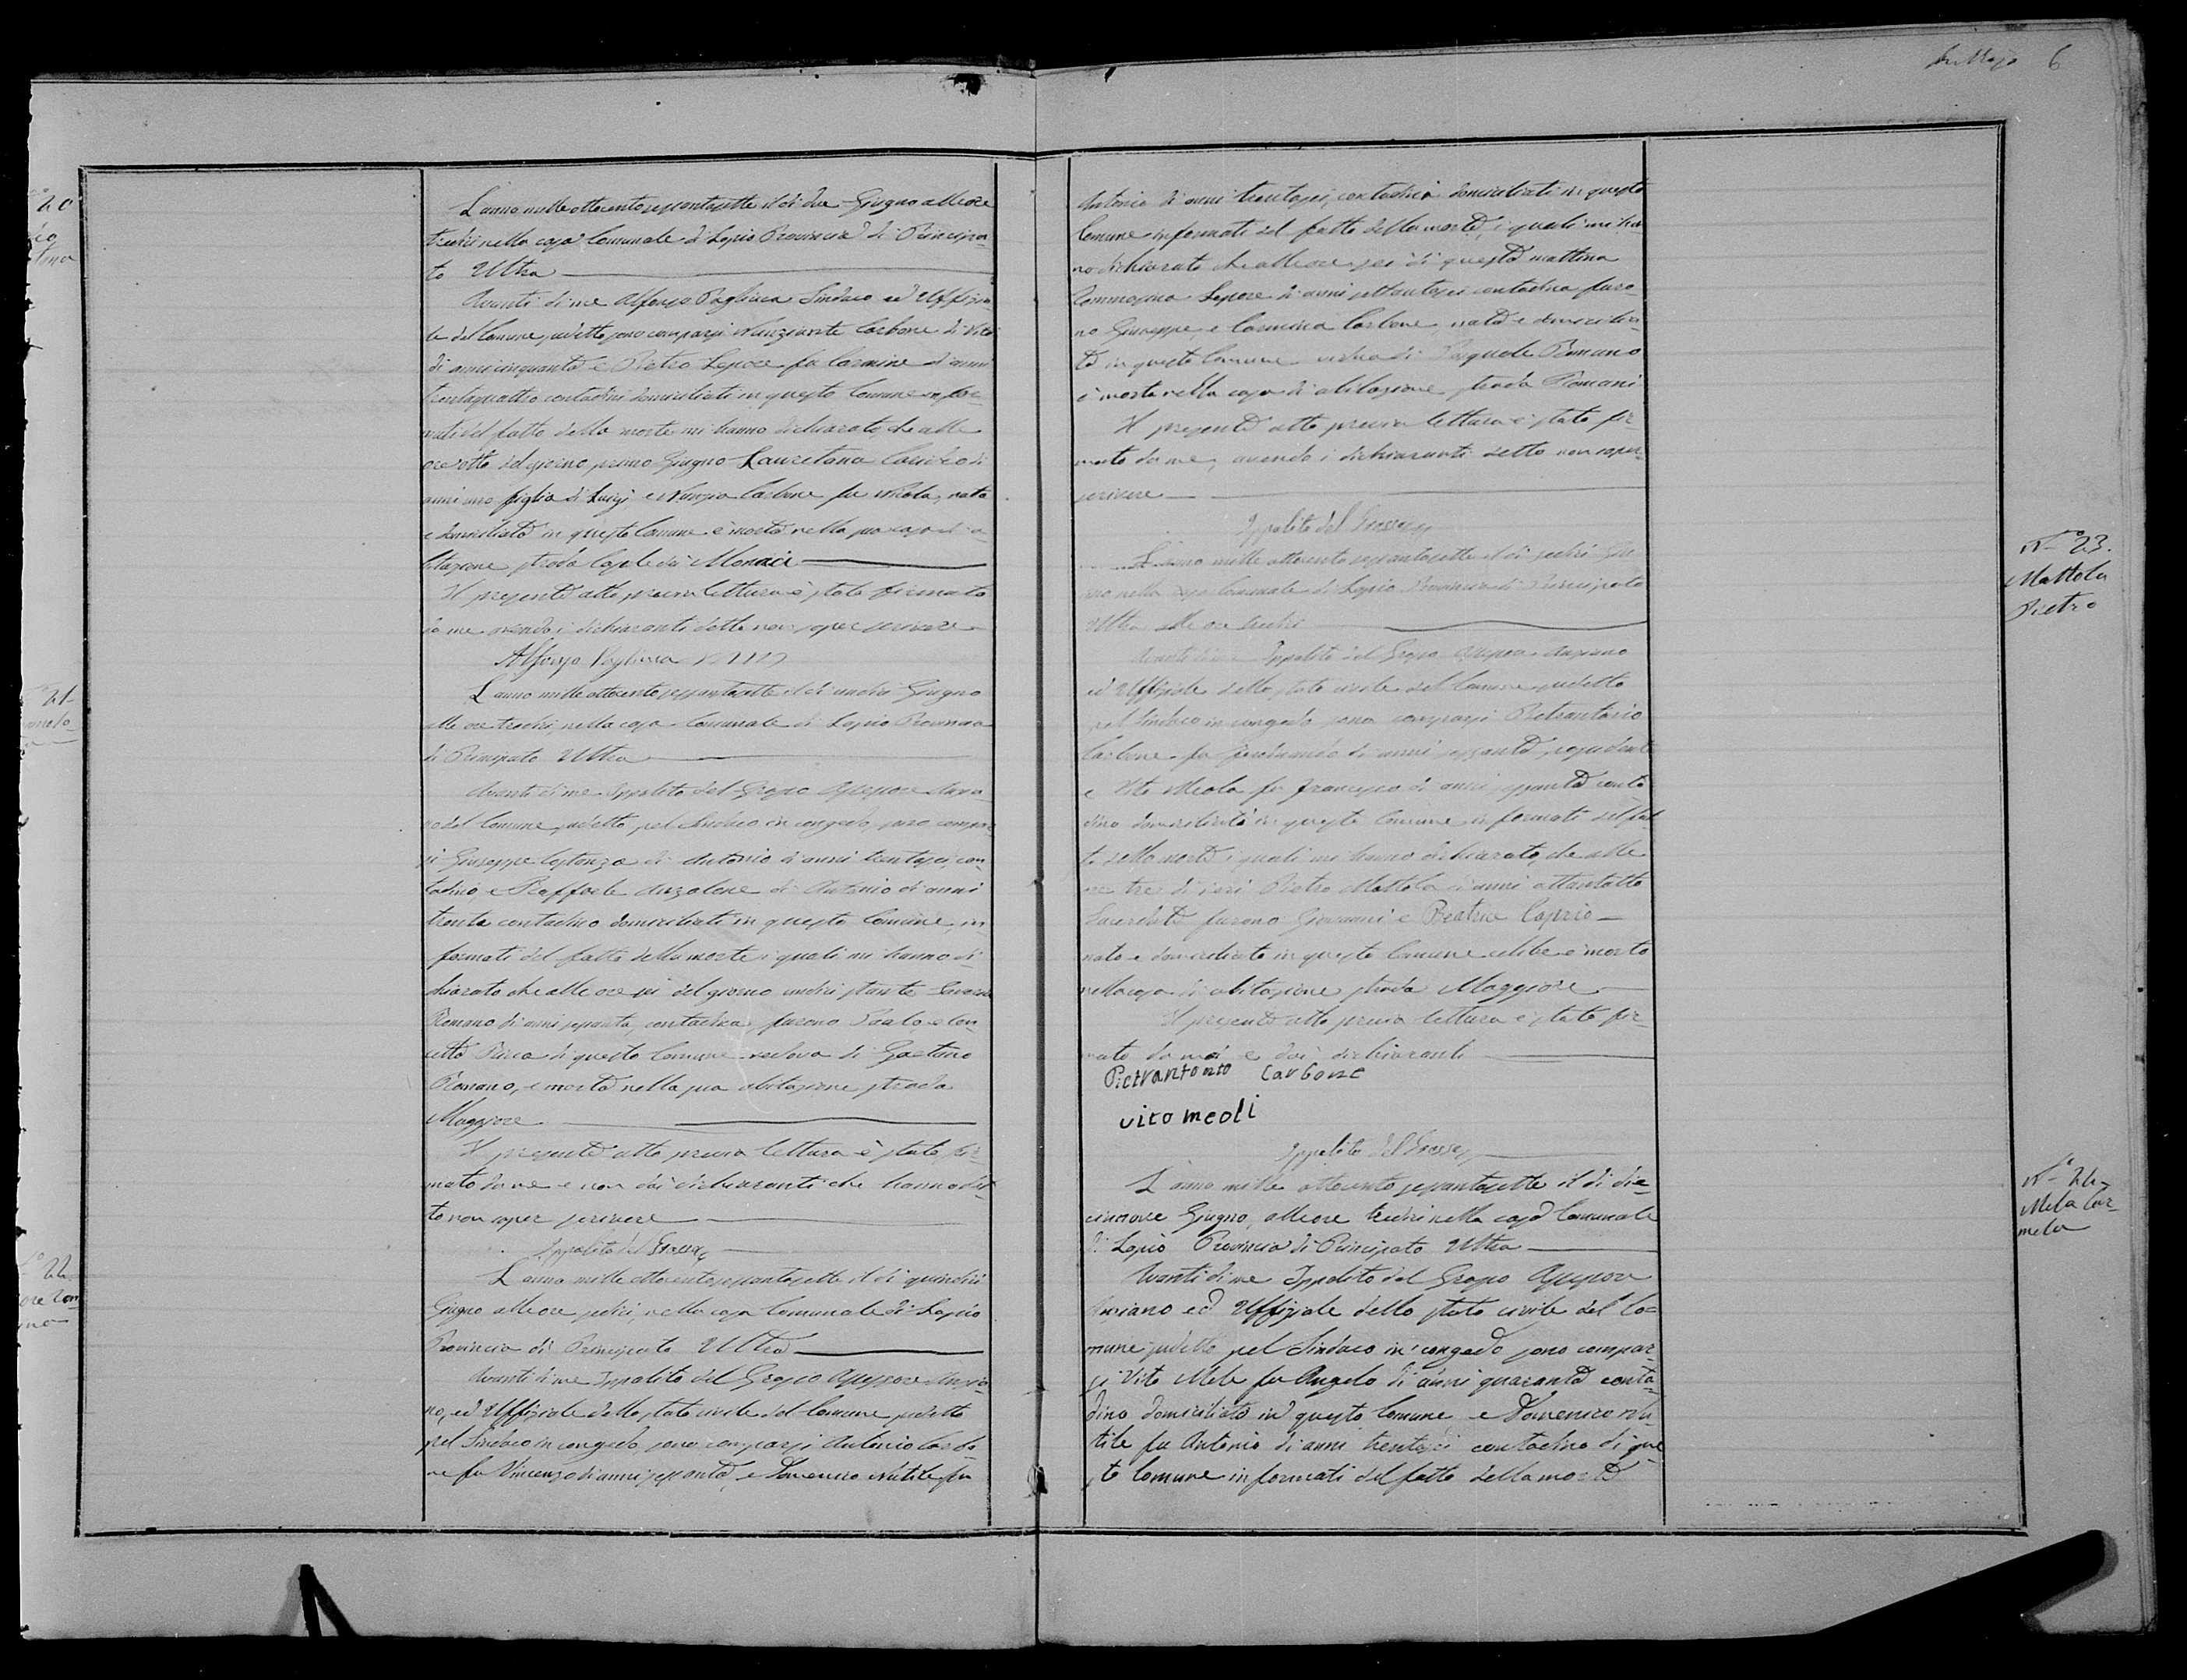 6
20
L'anno mille ottocento sessantasette il di due Giugno alle ore
tredici nella casa Comunale di Lapio Provincia di Principa-
to Ultra
Avanti di me Alfonso Pagliuca Sindaco ed Uffizia
le del Comune sudetto sono comparsi Nunziante Carbone di Vito
di anni cinquanta e Pietro Lepore fu Carmine di anni
trentaquattro contadini domiciliati in questo Comune infor-
mati del fatto della morte mi hanno dichiarato, che alle
ore otto del giorno primo Giugno Lauretana di
anni uno figlia di Luigi e Nunzia Carbone fu Nicola, nata
e domiciliata in questo Comune è morta nella sua casa di a-
bitazione strada Casale dei Monaci
Il presente atto previa lettura è stato firmato
da me avendo i dichiaranti detto non saper scrivere
Alfonso Pagliuca
21
L'anno mille ottocento sessantasette il di undici Giugno
alle ore tredici, nella casa Comunale di Lapio Provincia
di Principato Ultra
Avanti di me Ippolito del Grosso Assessore Anzia-
no del Comune sudetto pel Sindaco in congedo, sono compar-
si Giuseppe Costanza di Antonio di anni trentasei, con
tadino, e Raffaele Anzalone di Antonio di anni
trenta contadino domiciliati in questo Comune, in-
formati del fatto della morte i quali mi hanno di-
chiarato che alle ore sei del giorno undici stante
Romano di anni sessanta, contadina, furono Paolo, e Con-
cetta di questo Comune vedova di Gaetano
Romano, è morta nella sua abitazione strada
Maggiore
Il presente atto previa lettura è stato fir-
mato da me e non dai dichiaranti che hanno det-
to non saper scrivere
Ippolito del Grosso
22
L'anno mille ottocento sessantasette il di quindici
Giugno alle ore sedici, nella casa Comunale di Lapio
Provincia di Principato Ultra
Avanti di me Ippolito del Grosso Assessore Anzia-
no, ed Uffiziale dello stato civile del Comune sudetto
pel Sindaco in congedo, sono comparsi Antonio Carbo
ne fu Vincenzo di anni sessanta, e Domenico Nutile fu
Antonio di anni trentasei, contadini domiciliati in questo
Comune informati del fatto della morte, i quali mi han
no dichiarato che alle ore sei di questa mattina
Lepore di anni settantasei contadina furo-
no Giuseppe e Carmina Carbone, nata e domicilia-
ta in questo Comune vedova di Pasquale Romano
è morta nella casa di abitazione strada Romani
Il presente atto previa lettura è stato fir-
mato da me, avendo i dichiaranti detto non saper
scrivere
Ippolito del Grosso
N.° 23.
Mattola
Pietro
L'anno mille ottocento sessantasette il di sedici Giu
gno nella casa Comunale di Lapio Provincia di Principato
Ultra alle ore tredici
Avanti di me Ippolito del Grosso Assessore Anziano
ed Uffiziale dello stato civile del Comune sudetto
pel Sindaco in congedo sono comparsi Pietrantonio
Carbone fu Ferdinando di anni sessanta possidente
e Vito Meola fu Francesco di anni sessanta conta
dino domiciliati in questo Comune informati del fat
to della morte i quali mi hanno dichiarato, che alle
ore tre di ieri Pietro Mattola di anni ottantotto
Sacerdote furono Giovanni e Beatrice Caprio
nato e domiciliato in questo Comune celibe è morto
nella casa di abitazione strada Maggiore
Il presente atto previa lettura è stato fir-
mato da me e dai dichiaranti
Pietrantonio Carbone
vito meoli
Ippolito del Grosso
N.° 24
Mele Car-
mela
L'anno mille ottocento sessantasette il di die-
cinnove Giugno, alle ore tredici nella casa Comunale
di Lapio Provincia di Principato Ultra
Avanti di me Ippolito del Grosso Assessore
Anziano ed Uffiziale dello stato civile del Co-
mune sudetto pel Sindaco in congedo sono compar-
si Vito Mele fu Angelo di anni quaranta conta-
dino domiciliato in questo Comune e Domenico Nu-
tile fu Antonio di anni trentasei contadino di que
sto Comune informati del fatto della morte